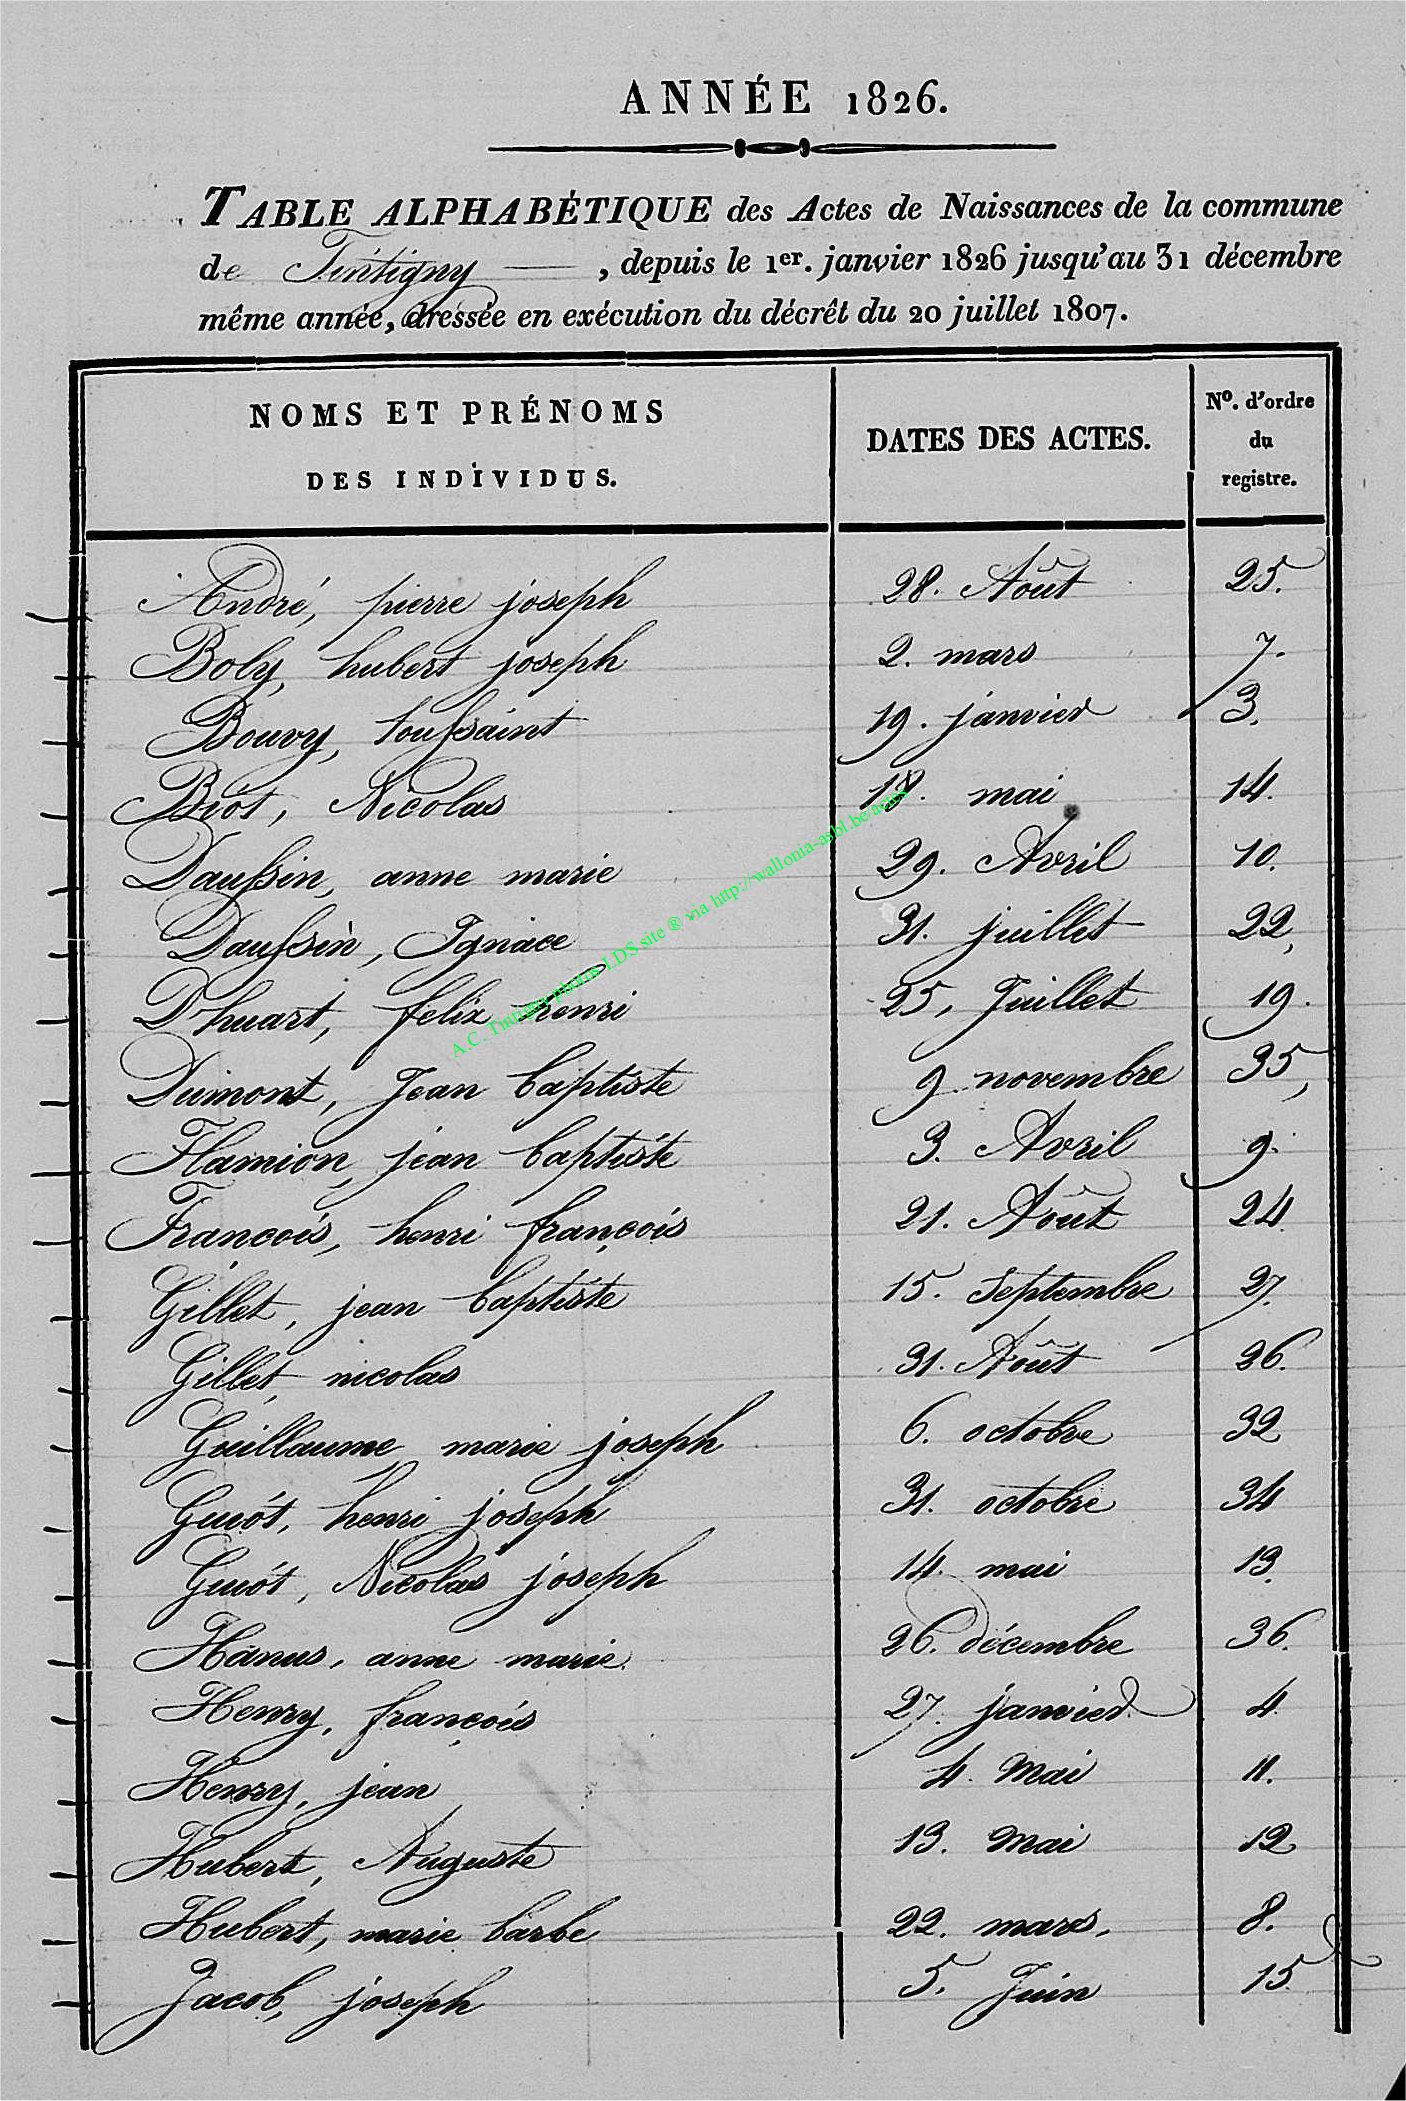 ANNÉE 1826.
TABLE ALPHABÉTIQUE des Actes de Naissances de la commune
de Tintigny , depuis le 1er. janvier 1826 jusqu'au 31 décembre
même année, dressée en exécution du décrêt du 20 juillet 1807.
NOMS ET PRÉNOMS
DES INDIVIDUS.
DATES DES ACTES.
No. d'ordre
du
registre.
André, pierre joseph 28. Août 25.
Boly, hubert joseph 2. mars 7.
Bouvy, toussaint 19. janvier 3.
Briot, Nicolas 18. mai 14.
Daussin, anne marie 29. Avril 10.
Daussin, Ignace 31. juillet 22,
D'huart, felix henri 25, Juillet 19.
Dumont, Jean baptiste 9 novembre 35,
Flamion, jean baptiste 3. Avril 9.
Francois, henri françois 21. Août 24.
Gillet, jean baptiste 15. Septembre 27.
Gillet, nicolas 31. Août 26.
Guillaume marie joseph 6. octobre 32
Guiót, henri joseph 31. octobre 34
Guiót, Nicolas joseph 14. mai 13.
Hanus, anne marie. 26. décembre 36.
Henry, françois 27. janvier 4.
Henry, jean 4. Mai 11.
Hubert, Auguste 13. Mai 12
Hubert, marie barbe 22. mars. 8.
Jacob, joseph 5. Juin 15
A.C. Tintigny photos LDS site ® via http://wallonia-asbl.be/actes